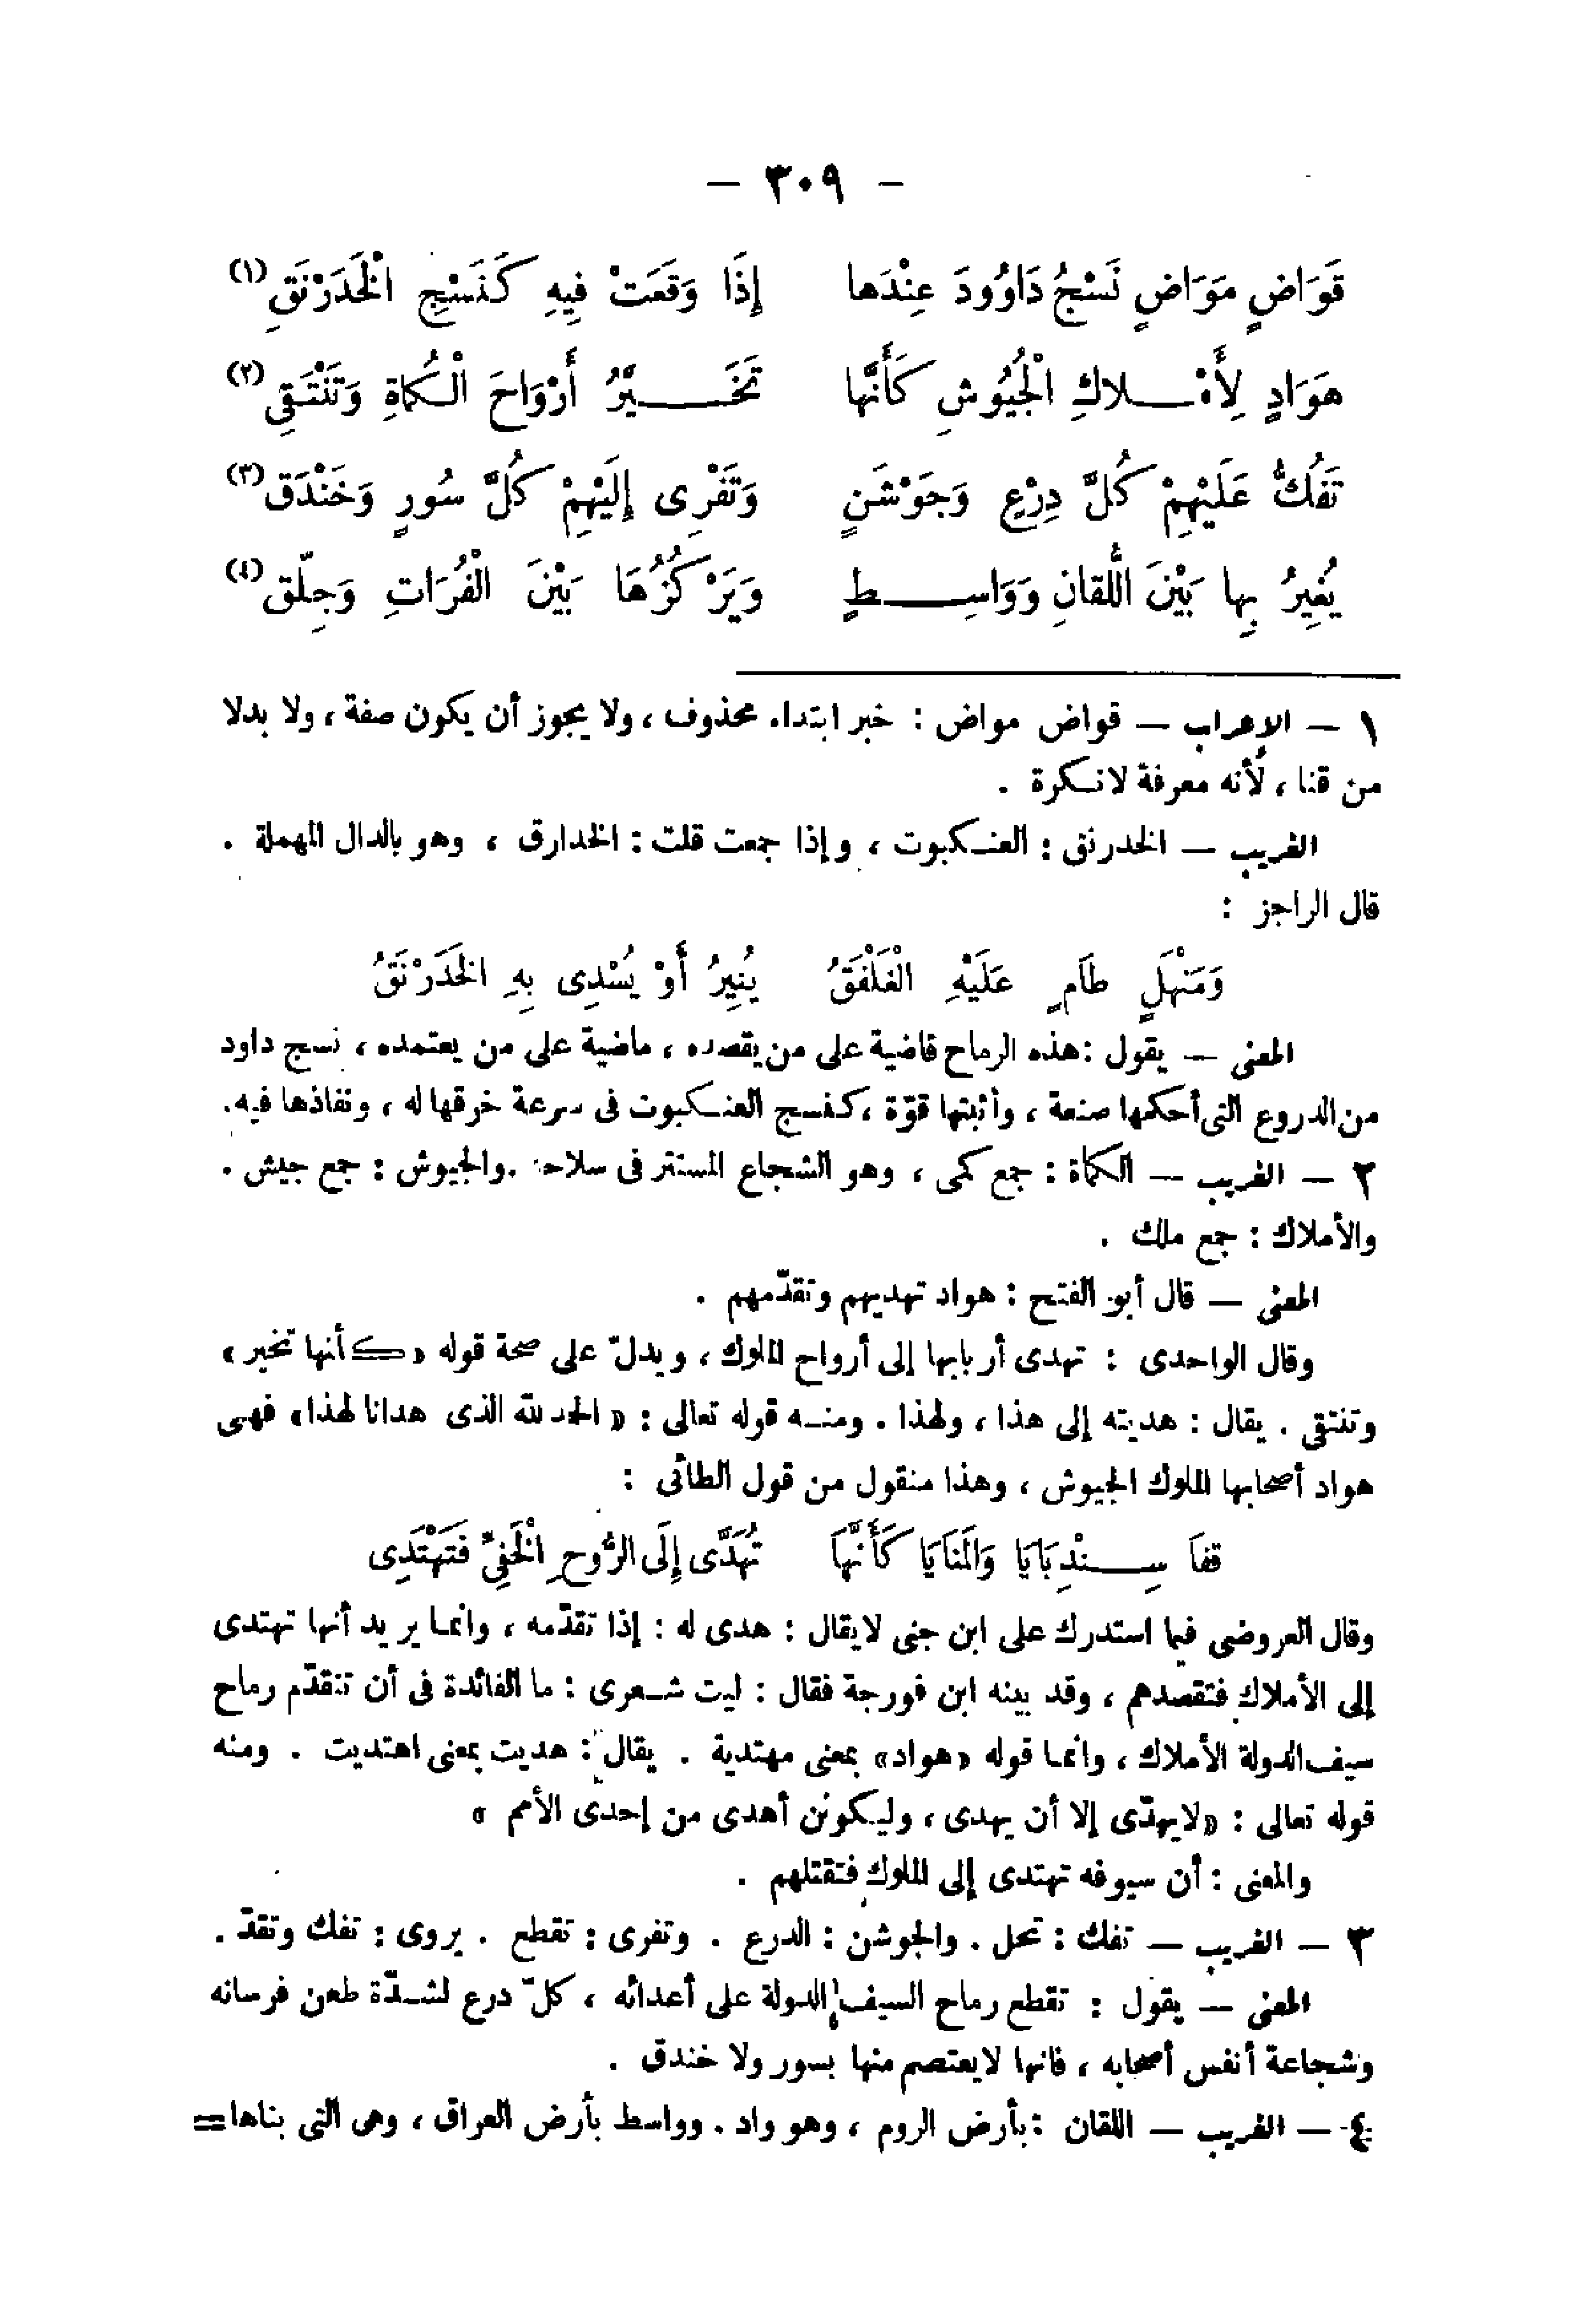 — ٣٠٩ —
قَوَاضٍ مَوَاضٍ نَسْجُ دَاوُودَ عِنْدَها إِذَا وَقَعَتْ فِيهِ كَنَسْجِ الْخَدَرْنَقِ (١)
هَوَادٍ لِأَمْـلاكِ الْجُيُوشِ كَأَنَّها تَخَـيَّرُ أَرْوَاحَ الْكُماةِ وَتَنْتَقِي (٢)
تَفُكُّ عَلَيْهِمْ كُلَّ دِرْعٍ وَجَوْشَنٍ وَتَفْرِى إِلَيْهِمْ كُلَّ سُورٍ وَخَنْدَق (٣)
يُغِيرُ بِها بَيْنَ اللُّقانِ وَوَاسِـطٍ وَيَرْكُزُهَا بَيْنَ الْفُرَاتِ وَجِلّق (٤)
١ — الإعراب — قواض مواض : خبر ابتداء محذوف ، ولا يجوز أن يكون صفة ، ولا بدلا
من قنا ، لأنه معرفة لا نـكرة .
الغريب — الخدرنق : العنـكبوت ، وإذا جمعت قلت : الخدارق ، وهو بالدال المهملة .
قال الراجز :
وَمَنْهَلٍ طَامٍ عَلَيْهِ الْغَلْفَقُ يُنِيرُ أَوْ يُسْدِى بِهِ الخَدَرْنَقُ
المعنى — يقول : هذه الرماح قاضية على من يقصده ، ماضية على من يعتمده ، نسج داود
من الدروع التى أحكمها صنعة ، وأثبتها قوّة ، كنسج العنـكبوت فى سرعة خرقها له ، ونفاذها فيه .
٢ — الغريب — الكماة : جمع كمى ، وهو الشجاع المستتر فى سلاحه . والجيوش : جمع جيش .
والأملاك : جمع ملك .
المعنى — قال أبو الفتح : هواد تهديهم وتقدّمهم .
وقال الواحدى : تهدى أربابها إلى أرواح الملوك ، ويدلّ على صحة قوله « كأنها تخير »
وتنتقى . يقال : هديته إلى هذا ، ولهذا . ومنـه قوله تعالى : « الحمد لله الذى هدانا لهذا » فهى
هواد أصحابها الملوك الجيوش ، وهذا منقول من قول الطائى :
قفَا سِـنْدِبَايَا وَالمَنَايَا كَأَنَّهَا تُهَدَّى إِلَى الرُّوحِ الْخَفِىِّ فَتَهْتَدِى
وقال العروضى فيما استدرك على ابن جنى لا يقال : هدى له : إذا تقدّمه ، وانمـا يريد أنها تهتدى
إلى الأملاك فتقصدهم ، وقد بينه ابن فورجة فقال : ليت شـعرى : ما الفائدة فى أن تتقدّم رماح
سيف الدولة الأملاك ، وانمـا قوله « هواد » بمعنى مهتدية . يقال : هديت بمعنى اهتديت . ومنه
قوله تعالى : « لا يهدّى إلا أن يهدى ، وليـكونن أهدى من إحدى الأمم »
والمعنى : أن سيوفه تهتدى إلى الملوك فتقتلهم .
٣ — الغريب — تفك : تحل . والجوشن : الدرع . وتفرى : تقطع . يروى : تفك وتقدّ .
المعنى — يقول : تقطع رماح السيف الدولة على أعدائه ، كلّ درع لشـدّة طعن فرسانه
وشجاعة أنفس أصحابه ، فانها لا يعتصم منها بسور ولا خندق .
٤ — الغريب — اللقان : بأرض الروم ، وهو واد . وواسط بأرض العراق ، وهى التى بناها =